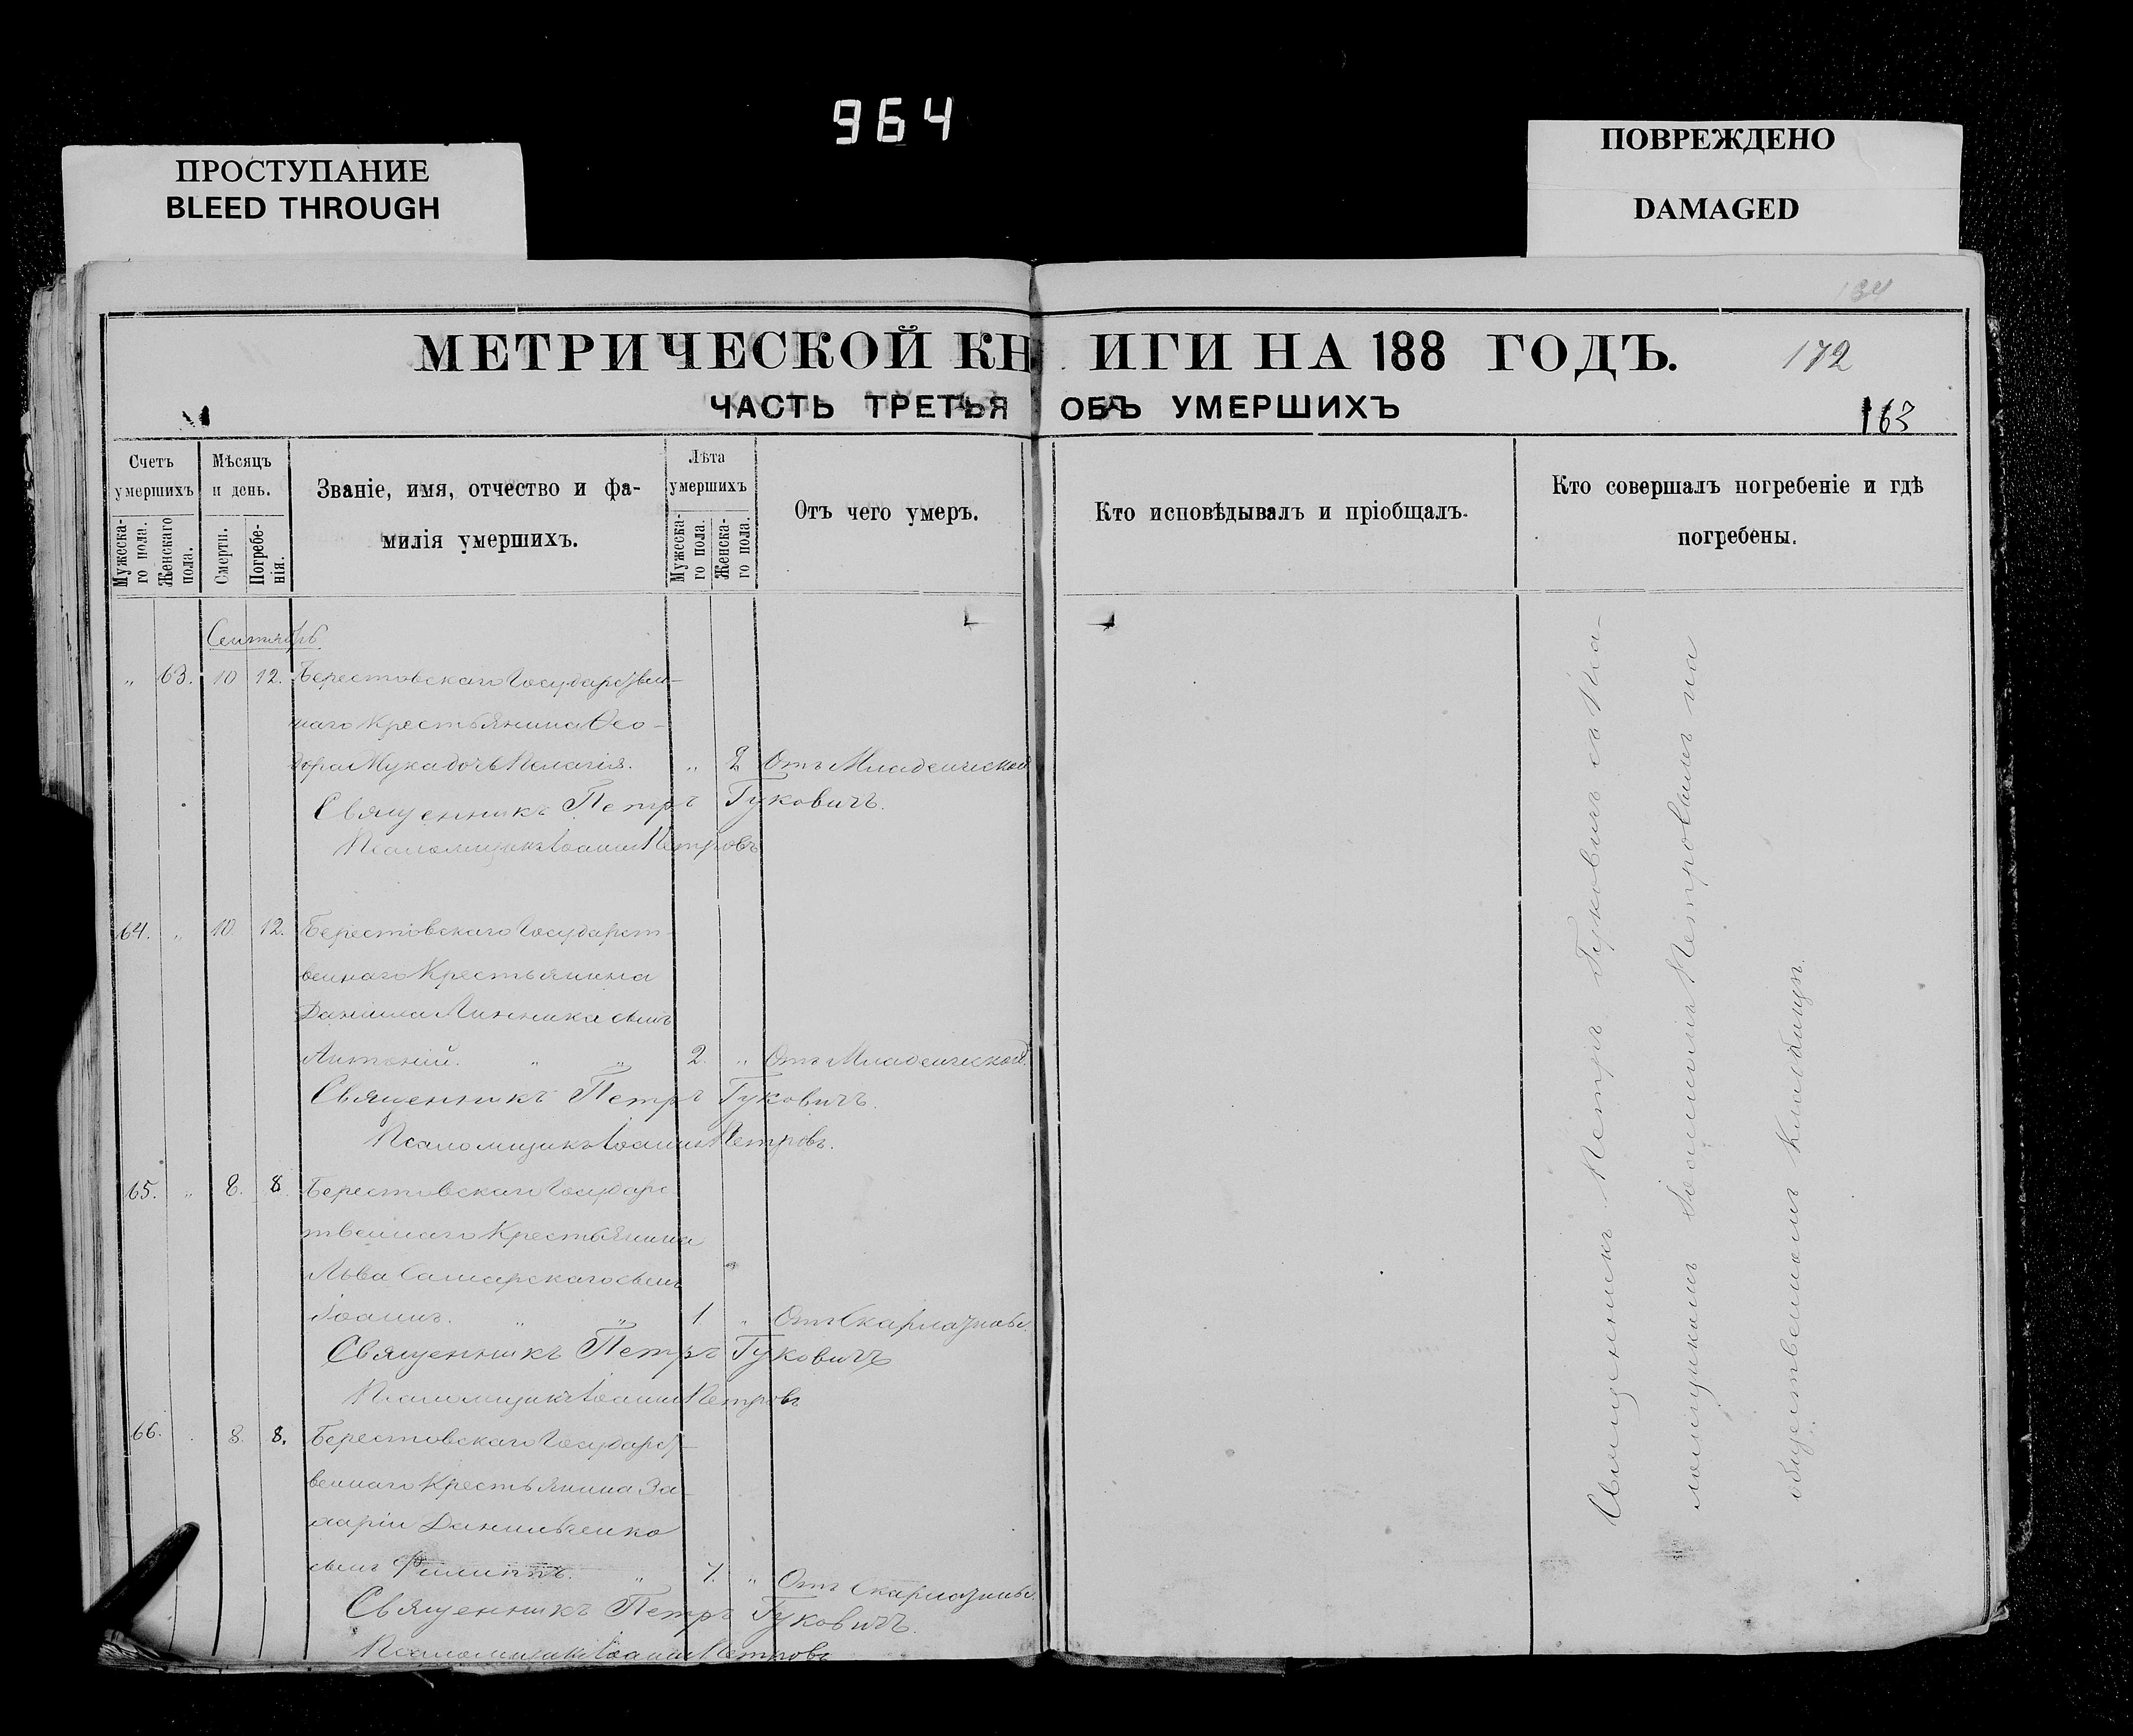 964
ПРОСТУПАНИЕ
BLEED THROUGH
ПОВРЕЖДЕНО
DAMAGED
184
МЕТРИЧЕСКОЙ КНИГИ НА 188 ГОДЪ.
172
ЧАСТЬ ТРЕТЬЯ ОБЪ УМЕРШИХЪ
163
Счетъ умершихъ
Мужеска-го пола.
Женскаго пола.
Мѣсяцъ и день.
Смерти.
Погребе-нія.
Званіе, имя, отчество и фа-
милія умершихъ.
Лѣта умершихъ
Мужеска-го пола.
Женска-го пола.
Отъ чего умеръ.
Кто исповѣдывалъ и пріобщалъ.
Кто совершалъ погребеніе и гдѣ
погребены.
Сентябрь
„ 63. 10 12. Берестовскаго Государствен-
наго Крестьянина Ѳео-
дора Мука дочь Пелагія. „ 2 Отъ Младенческой
Священникъ Петръ Гуковичъ.
Псаломщикъ Іоаннъ Петровъ
64. „ 10 12. Берестовскаго Государст-
веннаго Крестьянина
Даніила Линника сынъ
Антоній. „ „ 2. „ Отъ Младенческой.
Священникъ Петръ Гуковичъ.
Псаломщикъ Іоаннъ Петровъ.
65. „ 8. 8. Берестовскаго Государс
твеннаго Крестьянина
Льва Самарскаго сынъ
Іоаннъ. „ „ 1 „ Отъ Скарлатины.
Священникъ Петръ Гуковичъ
Псаломщикъ Іоаннъ Петровъ
66. 8. 8. Берестовскаго Государст-
веннаго Крестьянина За-
харіи Данильченко
сынъ Филиппъ. „ „ Отъ Скарлатины.
Священникъ Петръ Гуковичъ.
Псаломщикъ Іоаннъ Петровъ
Священникъ Петръ Гуковичъ съ Пса-
ломщикомъ Іоанномъ Петровымъ на
общественномъ кладбищѣ.